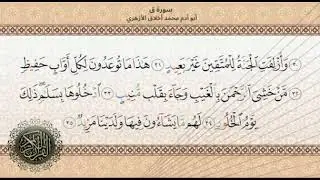 سورة ق
أبو آدم محمد أخلاق الأزهري
٣٠ وَأُزْلِفَتِ الْجَنَّةُ لِلْمُتَّقِينَ غَيْرَ بَعِيدٍ ٣١ هَٰذَا مَا تُوعَدُونَ لِكُلِّ أَوَّابٍ حَفِيظٍ
٣٢ مَّنْ خَشِيَ الرَّحْمَٰنَ بِالْغَيْبِ وَجَاءَ بِقَلْبٍ مُّنِيبٍ ٣٣ ادْخُلُوهَا بِسَلَامٍ ذَٰلِكَ
يَوْمُ الْخُلُودِ ٣٤ لَهُم مَّا يَشَاءُونَ فِيهَا وَلَدَيْنَا مَزِيدٌ ٣٥